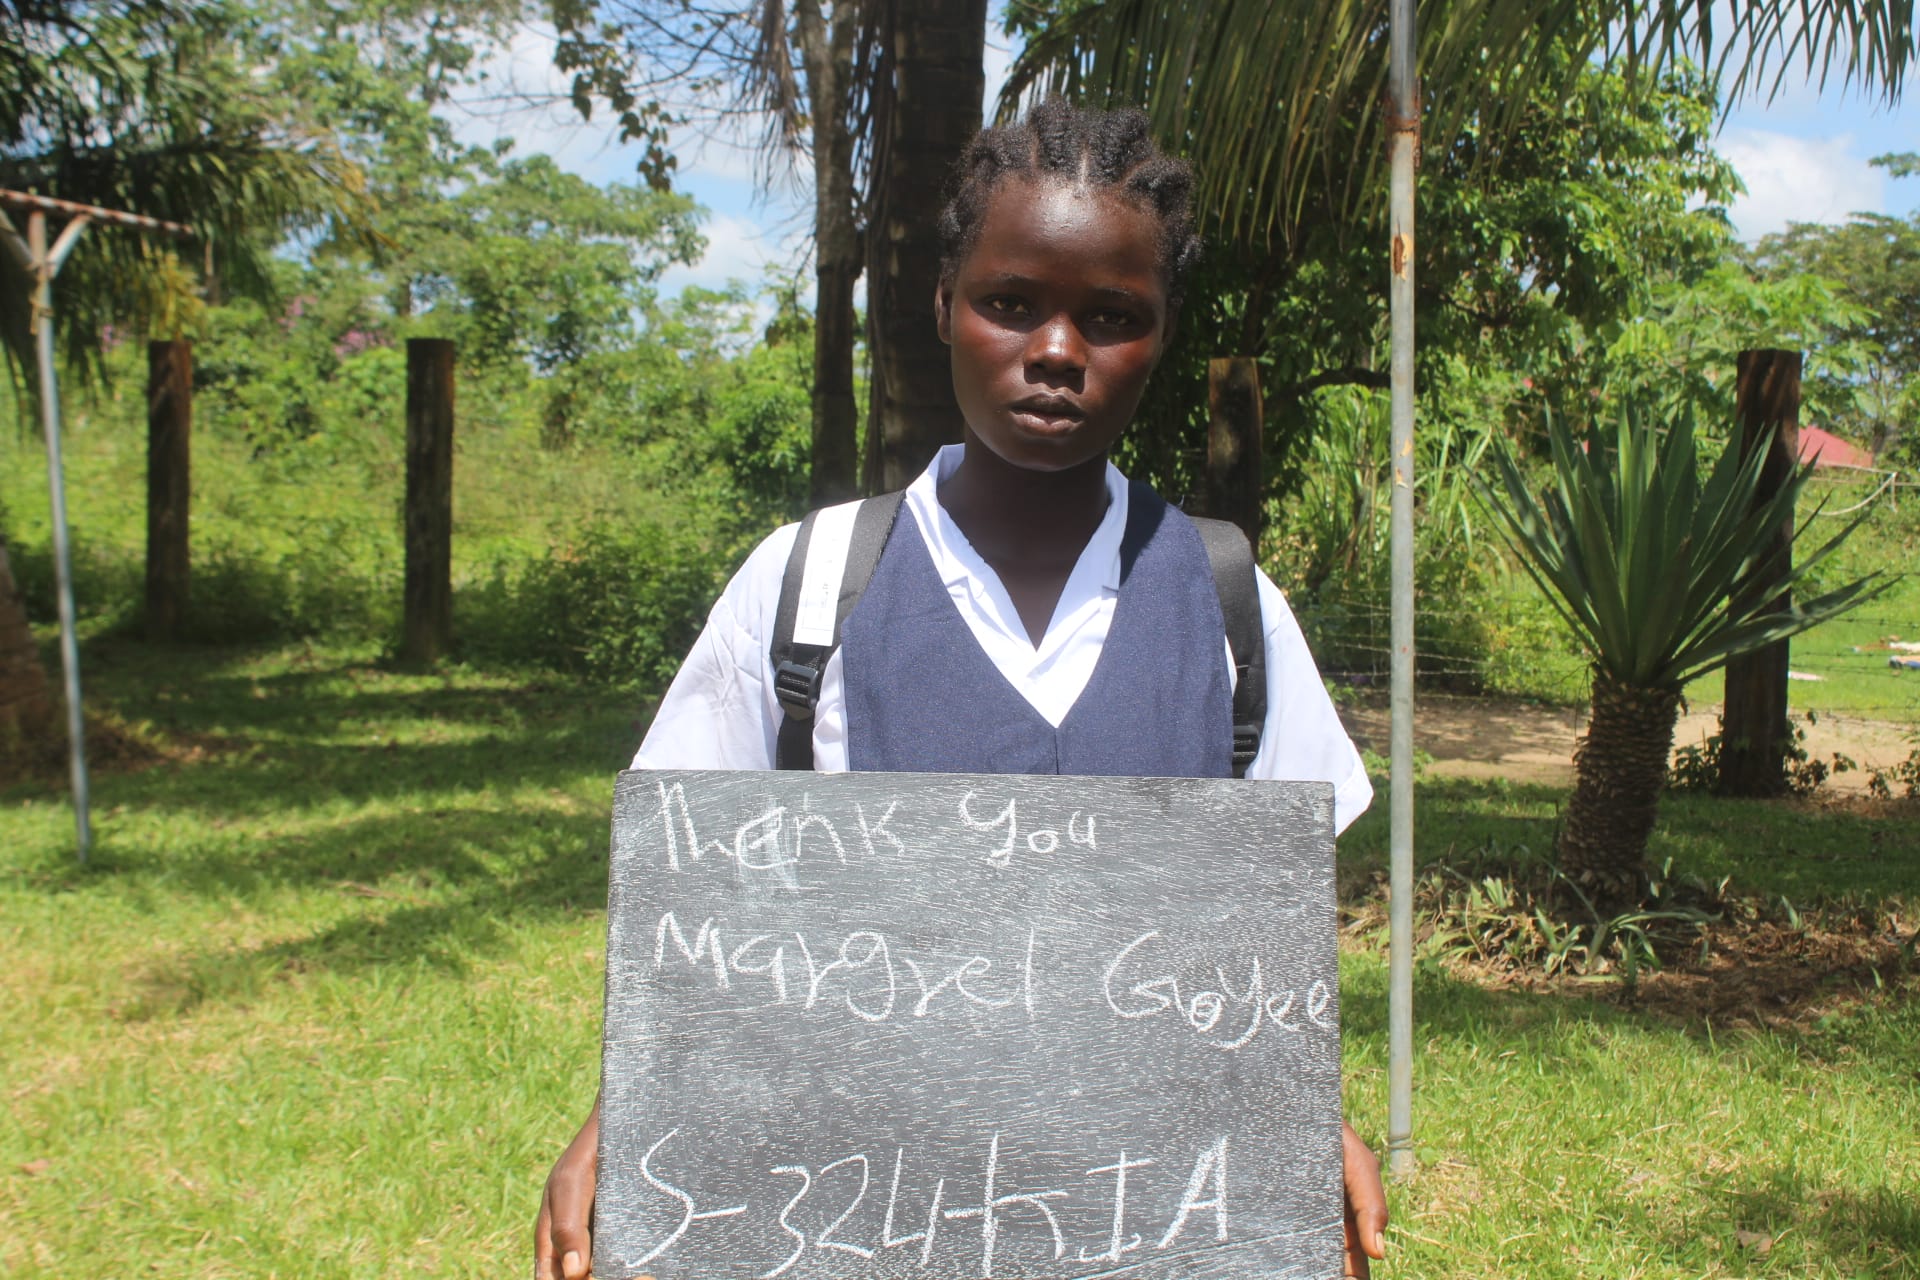 Thank you
Margret Goyee
S-324-KIA